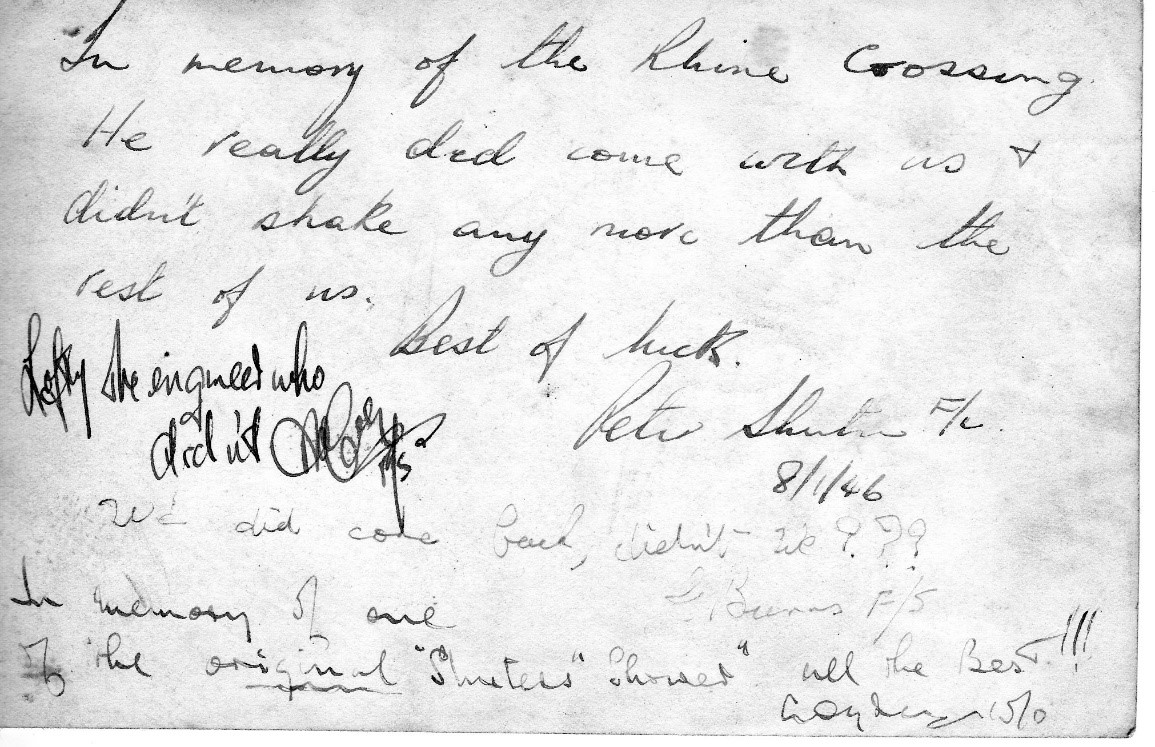 In memory of the Rhine Crossing.
He really did come with us +
didn't shake any more than the
rest of us.
Best of luck.
Lofty the engineer who
didn't
Peter F/L.
8/1/46
We did come back, didn't we???
Burns F/S
In memory of one
of the original "Shuters" Shower" all the Best!!!
W/O